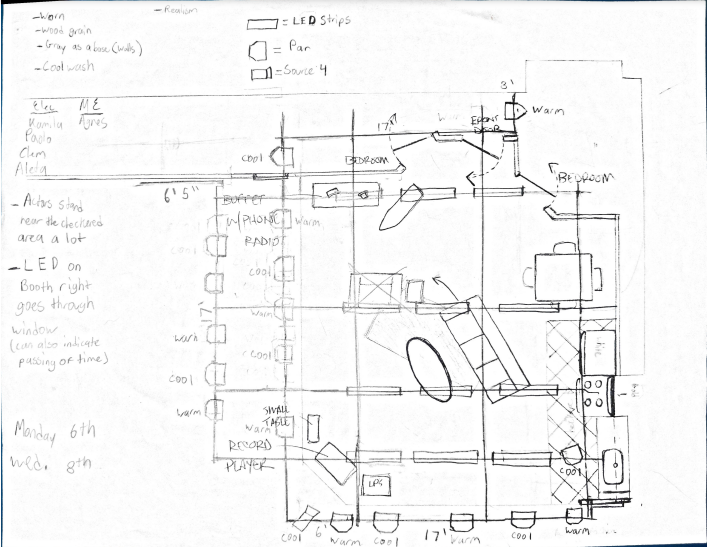 - Worn
- wood grain
- Gray as a base (walls)
- Cool wash
- Realism
= LED Strips
= Par
= Source 4
Elec
Kamila
Paolo
Clem
Aleta
ME
Agnes
- Actors stand
near the checkered
area a lot
- LED on
Booth right
goes through
window
(can also indicate
passing of time)
Monday 6th
Wed. 8th
3'
Warm
17'
FRONT
DOOR
COOl
BEDROOM
BEDROOM
6' 5"
BUFFET
W/PHONE
RADIO
Warm
COOl
COOl
Warm
17'
Warm
COOl
COOl
Warm
SMALL
TABLE
Warm
RECORD
PLAYER
LPs
COOl
COOl
6'
Warm
COOl
17'
Warm
COOl
Warm